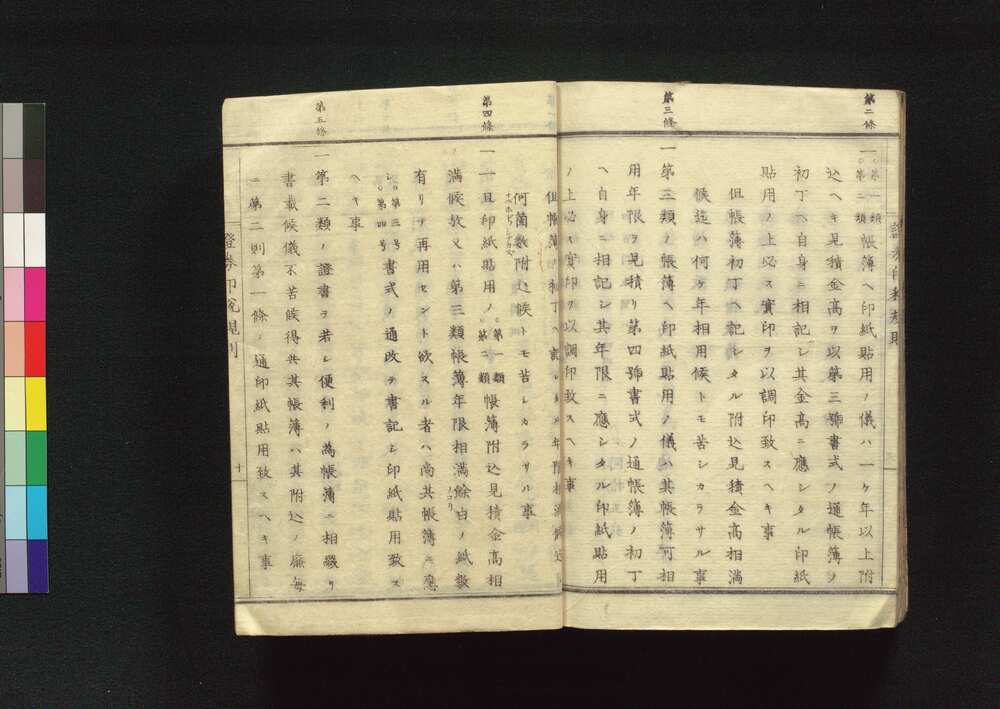 第二條
一 第一類 第二類 帳簿ヘ印紙貼用ノ儀ハ一ケ年以上附
込ヘキ見積金高ヲ以第三號書式ノ通帳簿ノ
初丁ヘ自身ニ相記シ其金高ニ應シタル印紙
貼用ノ上必ス實印ヲ以調印致スヘキ事
但帳簿初丁ヘ記シタル附込見積金高相満
候迄ハ何ケ年相用候トモ苦シカラサル事
第三條
一第三類ノ帳簿ヘ印紙貼用ノ儀ハ其帳簿可相
用年限ヲ見積リ第四號書式ノ通帳簿ノ初丁
ヘ自身ニ相記シ其年限ニ應シタル印紙貼用
ノ上必ス實印ヲ以調印致スヘキ事
但帳簿初丁ヘ記シタル年限相満候迄
何箇数附込候トモ苦シカラサル事
第四條
一一旦印紙貼用ノ 第一類 第二類 帳簿附込見積金高相
満候歟又ハ第三類帳簿年限相満餘白ノ紙数
ノコリ
有リテ再用セント欲スル者ハ尚其帳簿ニ應
シ 第三号 第四号 書式ノ通改テ書記シ印紙貼用致ス
ヘキ事
第五條
一第二類ノ證書ヲ若シ便利ノ為帳簿ニ相綴リ
書載候儀不苦候得共其帳簿ハ其附込ノ廉毎
ニ第二則第一條ノ通印紙貼用致スヘキ事
證券印税規則
十